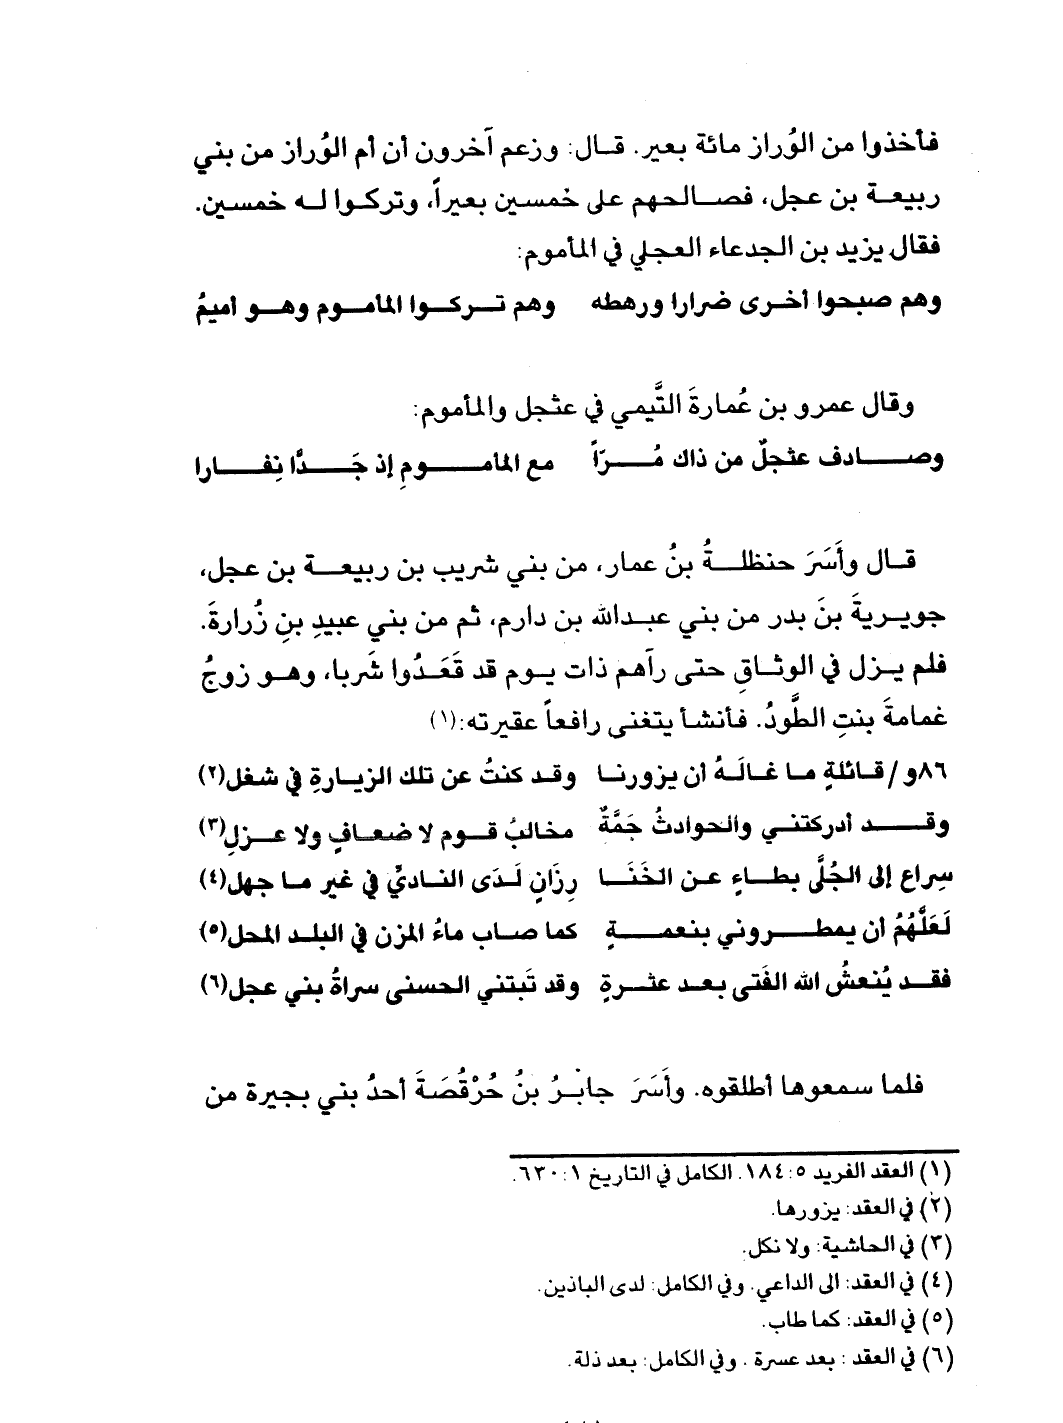 فأخذوا من الوُراز مائة بعير. قال: وزعم آخرون أن أم الوُراز من بني
ربيعة بن عجل، فصالحهم على خمسين بعيراً، وتركوا له خمسين.
فقال يزيد بن الجدعاء العجلي في المأموم:
وهم صبحوا أخرى ضرارا ورهطه وهم تركوا المأموم وهو أميمُ
وقال عمرو بن عُمارةَ التَّيمي في عثجل والمأموم:
وصادف عثجلٌ من ذاك مُرّاً مع المأمومِ إذ جَدَّا نِفارا
قال وأَسَرَ حنظلةُ بنُ عمار، من بني شريب بن ربيعة بن عجل،
جويريةَ بنَ بدر من بني عبدالله بن دارم، ثم من بني عبيدِ بنِ زُرارةَ.
فلم يزل في الوثاقِ حتى رآهم ذات يوم قد قَعَدُوا شَربا، وهو زوجُ
غمامةَ بنتِ الطَّودُ. فأنشأ يتغنى رافعاً عقيرته:(١)
٨٦و/ قائلةٍ ما غالَهُ أن يزورنا وقد كنتُ عن تلك الزيارةِ في شغل(٢)
وقد أدركتني والحوادثُ جَمَّةٌ مخالبُ قوم لا ضعافٍ ولا عزلِ(٣)
سِراع إلى الجُلَّى بطاءٍ عن الخَنَا رِزَانٍ لَدَى النادِيِّ في غير ما جهل(٤)
لَعَلَّهُمُ أن يمطروني بنعمةٍ كما صاب ماءُ المزن في البلد المحل(٥)
فقد يُنعشُ الله الفَتى بعد عثرةٍ وقد تَبتني الحسنى سراةُ بني عجل(٦)
فلما سمعوها أطلقوه. وأَسَرَ جابرُ بنُ حُرْقُصَةَ أحدُ بني بجيرة من
(١) العقد الفريد ٥: ١٨٤. الكامل في التاريخ ١: ٦٣٠.
(٢) في العقد: يزورها.
(٣) في الحاشية: ولا نكل.
(٤) في العقد: الى الداعي. وفي الكامل: لدى الباذين.
(٥) في العقد: كما طاب.
(٦) في العقد : بعد عسرة . وفي الكامل: بعد ذلة.